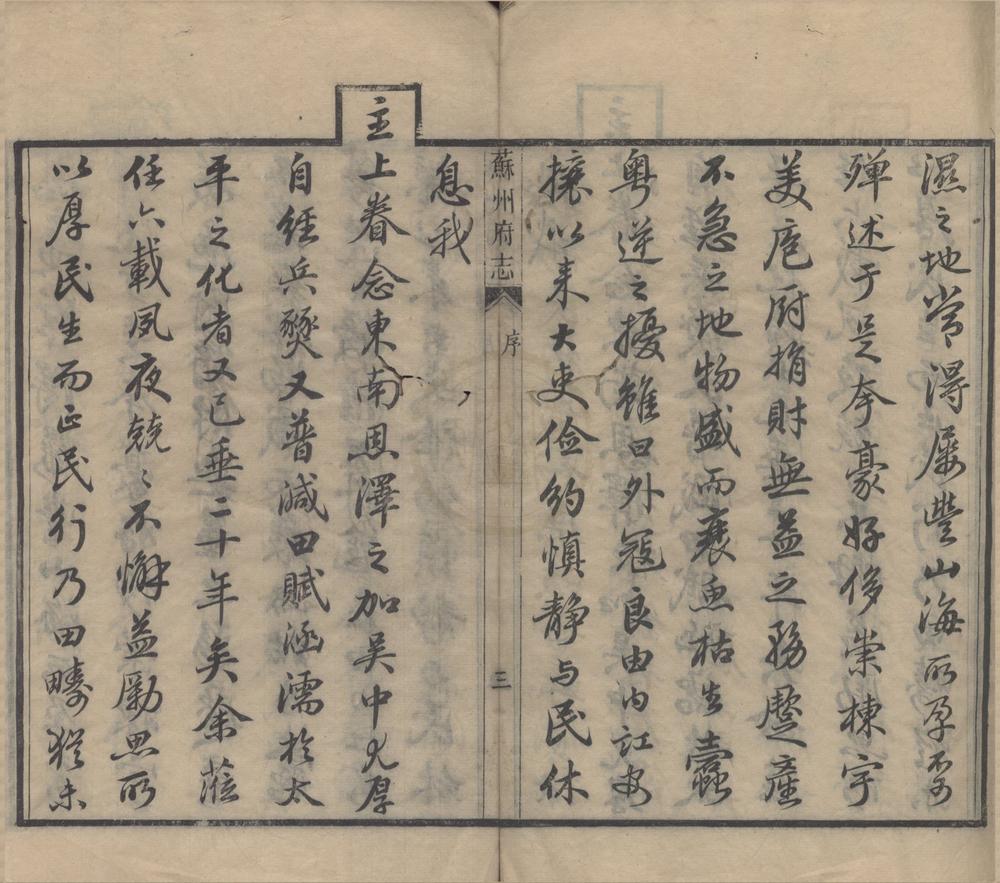 濕之地常得屢豐山海所孕不可
殫述于是奔豪好侈崇棟宇
美庖廚捐財無益之務壓產
不急之地物盛而衰魚枯生蠹
粵逆之擾雖曰外寇良由內訌安
攘以來大吏儉約慎靜与民休
息我
蘇州府志
序
三
主
上眷念東南恩澤之加吳中尤厚
自經兵燹又普減田賦涵濡於太
平之化者又已垂二十年矣余蒞
任六載夙夜兢〻不懈益勵思所
以厚民生而正民行乃田疇猶未